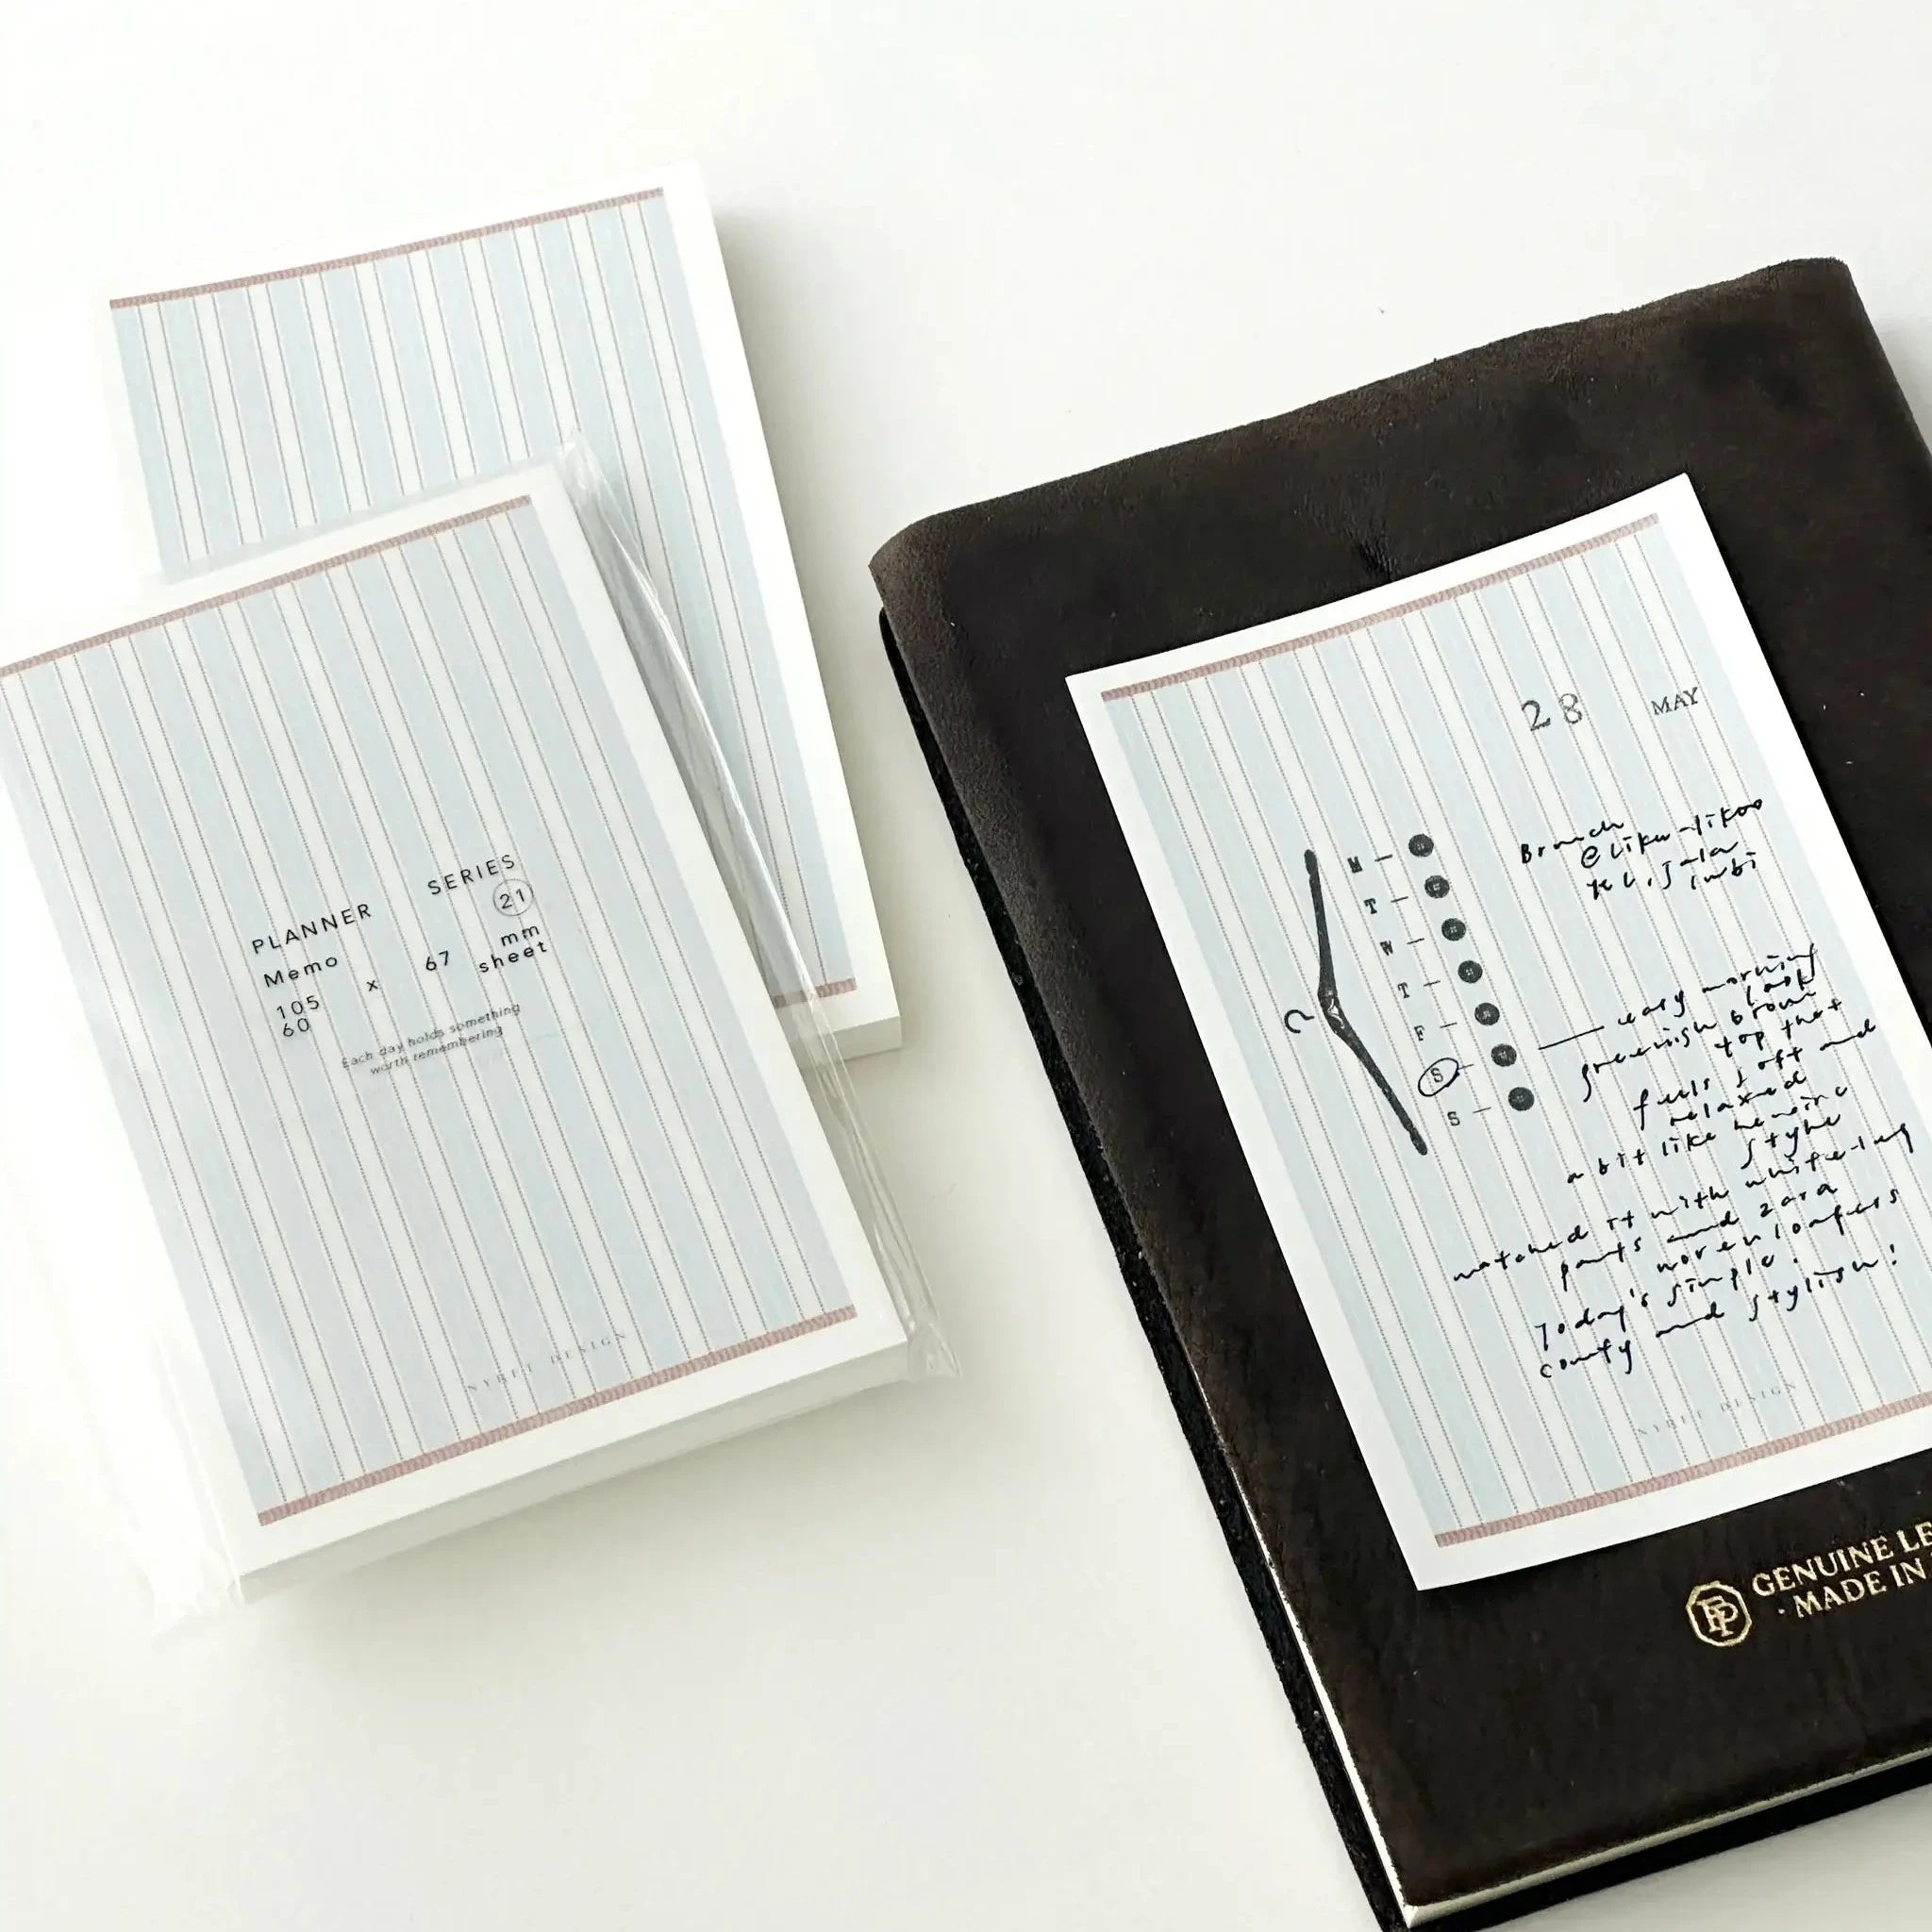 PLANNER SERIES
Memo 21
105 x 67 mm
60 sheet
Each day holds something
worth remembering
NYRET DESIGN
28 MAY
M
T
W
T
F
S
S
Brunch
@ liku-likoo
imbi
easy morning
look
greenish brown
top that
feels soft and
relaxed
a bit like hemine
style
matched it with white-leg
pants and zara
woven loafers
Today's simple.
comfy and stylish!
NYRET DESIGN
FP
GENUINE LE
· MADE IN